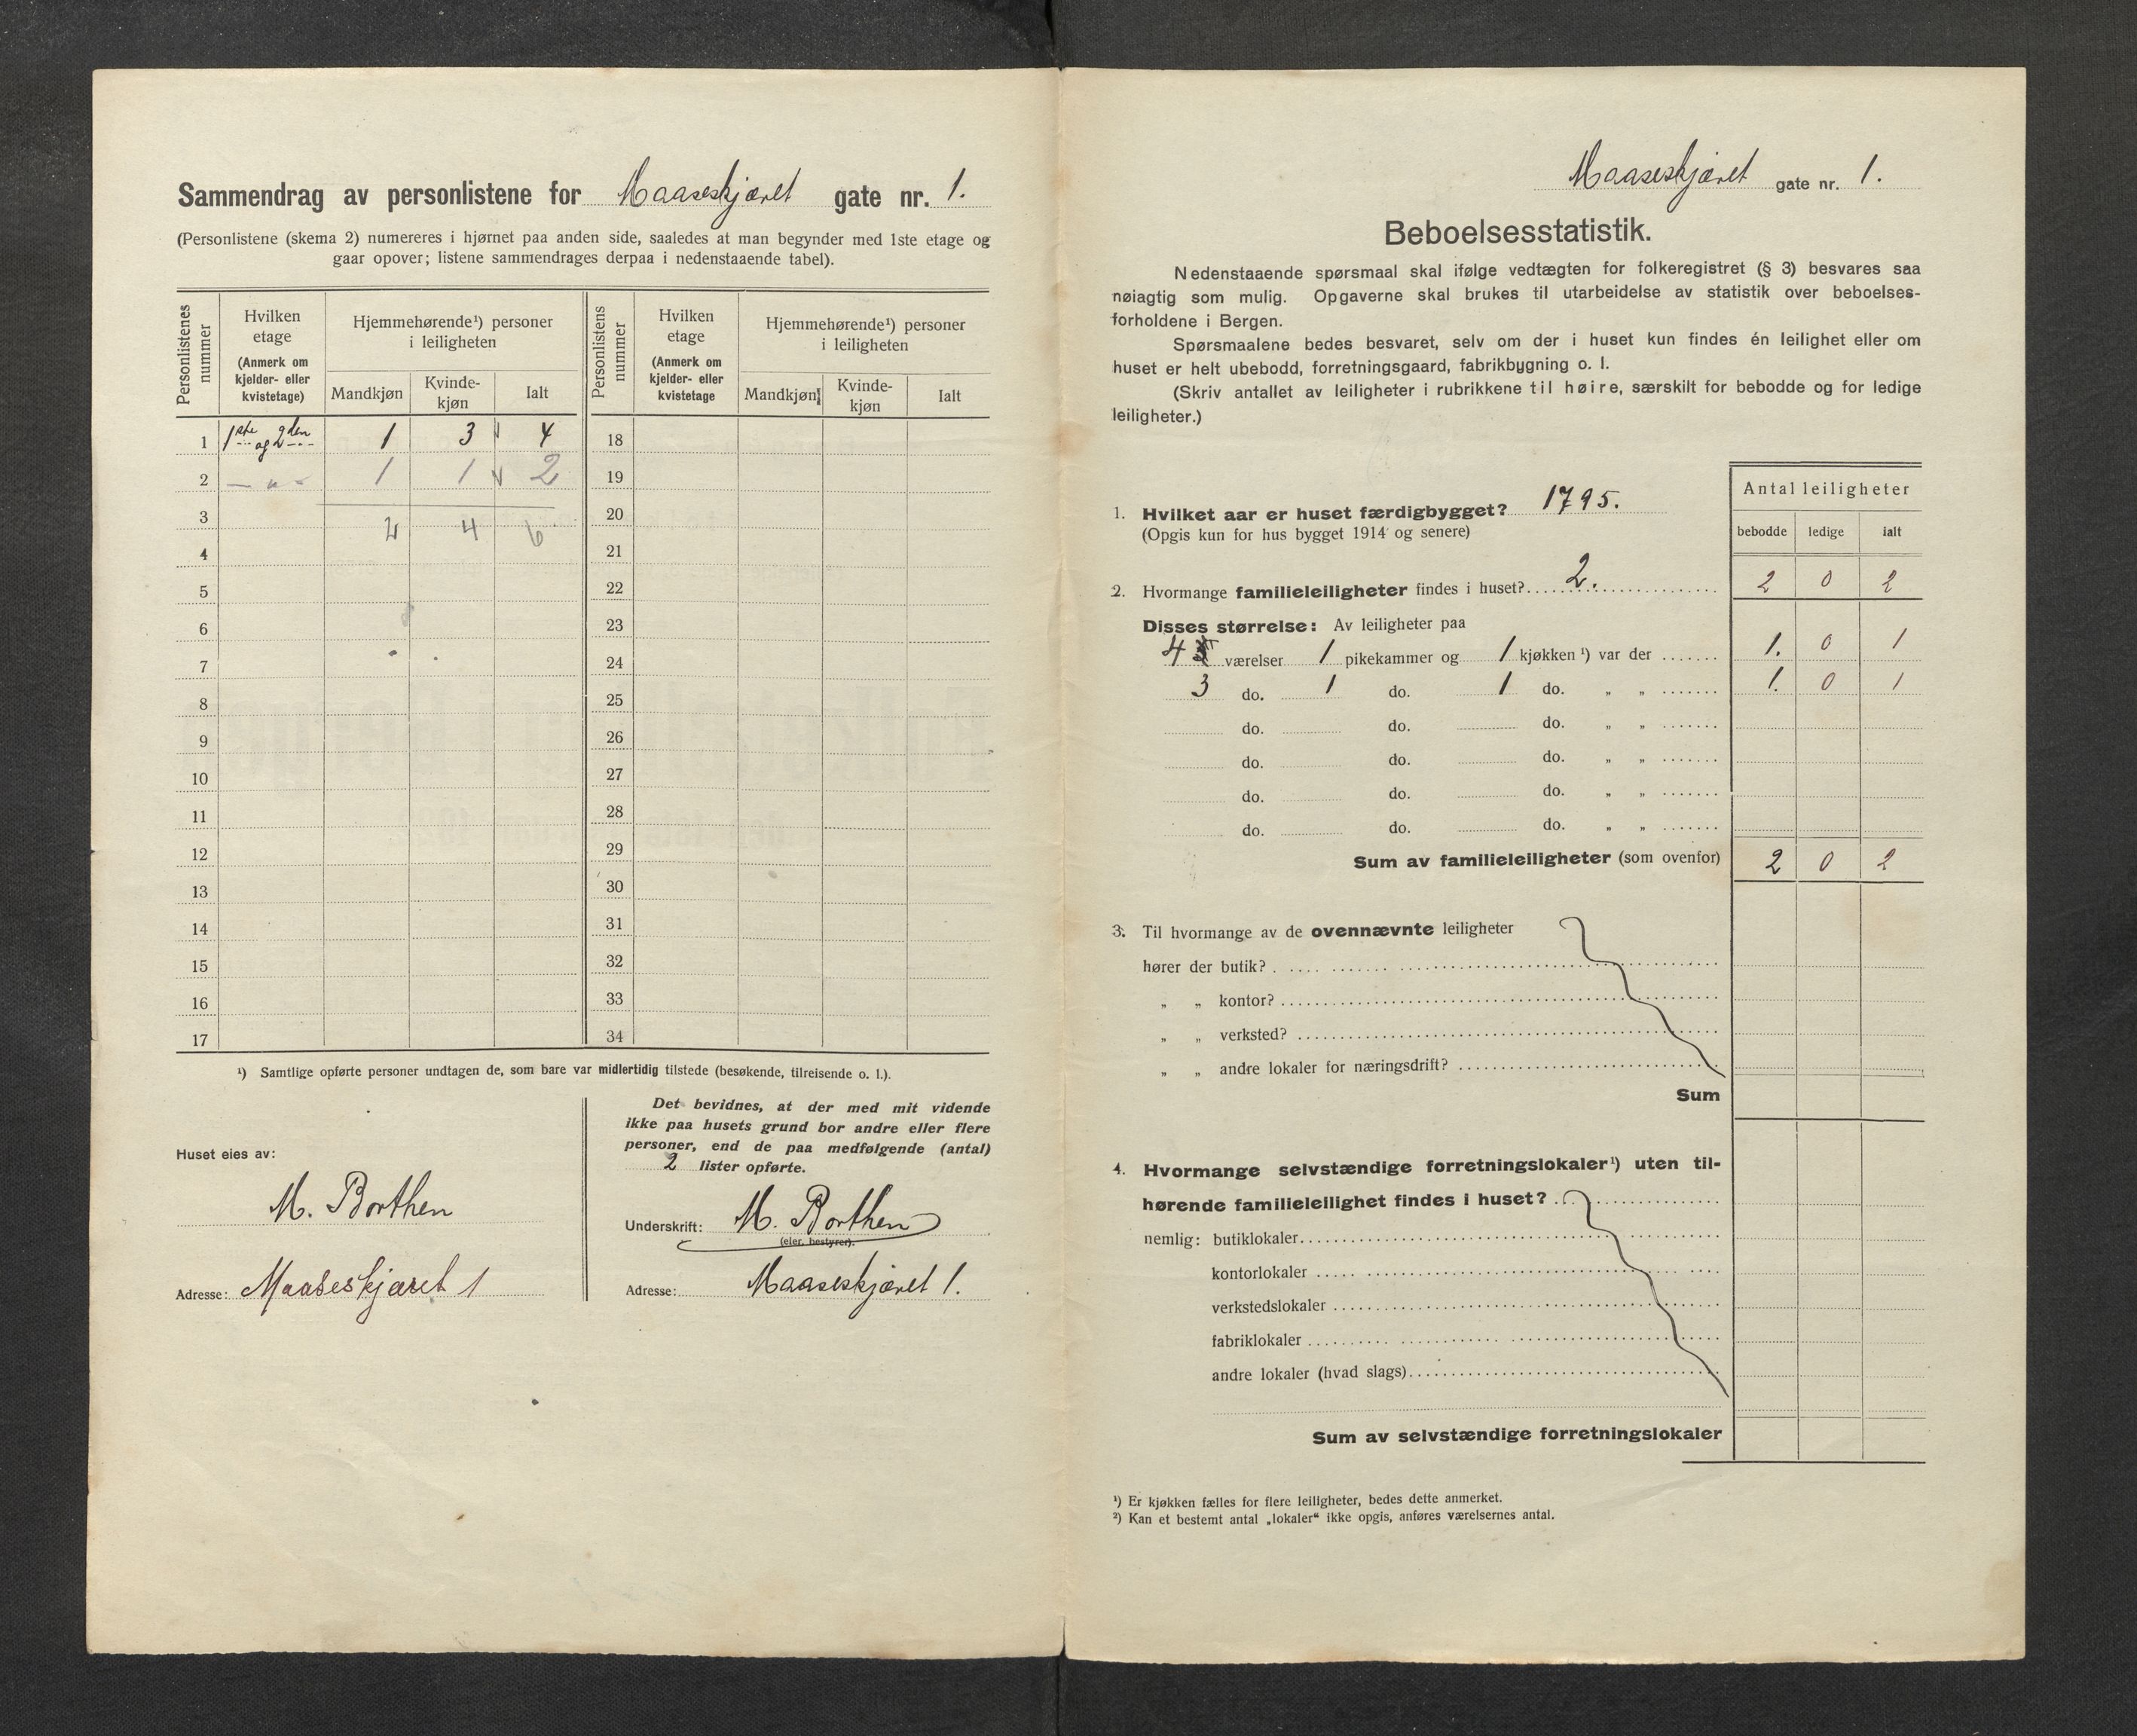 Sammendrag av personlistene for Maaseskjæret gate nr. 1.
(Personlistene (skema 2) numereres i hjørnet paa anden side, saaledes at man begynder med 1ste etage og
gaar opover; listene sammendrages derpaa i nedenstaaende tabel).
Personlistenes nummer
Hvilken etage
(Anmerk om kjelder- eller kvistetage)
Hjemmehørende¹) personer i leiligheten
Mandkjøn
Kvinde-kjøn
Ialt
Personlistens nummer
Hvilken etage
(Anmerk om kjelder- eller kvistetage
Hjemmehørende¹) personer i leiligheten
Mandkjøn
Kvinde-kjøn
Ialt
1 1ste og 2den 1 3 4 18
2 — " - 1 1 2 19
3 2 4 6 20
4 21
5 22
6 23
7 24
8 25
9 26
10 27
11 28
12 29
13 30
14 31
15 32
16 33
17 34
¹) Samtlige opførte personer undtagen de, som bare var midlertidig tilstede (besøkende, tilreisende o. l.).
Huset eies av:
M. Borthen
Adresse: Maaseskjæret 1
Det bevidnes, at der med mit vidende
ikke paa husets grund bor andre eller flere
personer, end de paa medfølgende (antal)
2 lister opførte.
Underskrift: M. Borthen
(eier, bestyrer).
Adresse: Maaseskjæret 1.
Maaseskjæret gate nr. 1.
Beboelsesstatistik.
Nedenstaaende spørsmaal skal ifølge vedtægten for folkeregistret (§ 3) besvares saa
nøiagtig som mulig. Opgaverne skal brukes til utarbeidelse av statistik over beboelses-
forholdene i Bergen.
Spørsmaalene bedes besvaret, selv om der i huset kun findes én leilighet eller om
huset er helt ubebodd, forretningsgaard, fabrikbygning o. l.
(Skriv antallet av leiligheter i rubrikkene til høire, særskilt for bebodde og for ledige
leiligheter.)
Antal leiligheter
bebodde ledige ialt
1. Hvilket aar er huset færdigbygget? 1795.
(Opgis kun for hus bygget 1914 og senere)
2. Hvormange familieleiligheter findes i huset? 2. 2 0 2
Disses størrelse: Av leiligheter paa
4 værelser 1 pikekammer og 1 kjøkken ¹) var der 1. 0 1
3 do. 1 do. 1 do. " " 1. 0 1
do. do. do. " "
do. do. do. " "
do. do. do. " "
do. do. do. " "
Sum av familieleiligheter (som ovenfor) 2 0 2
3. Til hvormange av de ovennævnte leiligheter
hører der butik?
" " kontor?
" " verksted?
" " andre lokaler for næringsdrift?
Sum
4. Hvormange selvstændige forretningslokaler¹) uten til-
hørende familieleilighet findes i huset?
nemlig: butiklokaler
kontorlokaler
verkstedslokaler
fabriklokaler
andre lokaler (hvad slags)
Sum av selvstændige forretningslokaler
¹) Er kjøkken fælles for flere leiligheter, bedes dette anmerket.
²) Kan et bestemt antal „lokaler“ ikke opgis, anføres værelsernes antal.